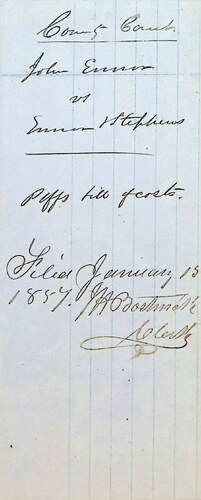 County Court.
John Ennor
vs
Ennor & Stephens
Plffs bill of costs.
Filed January 13
1857. J H Bostwick
Clerk